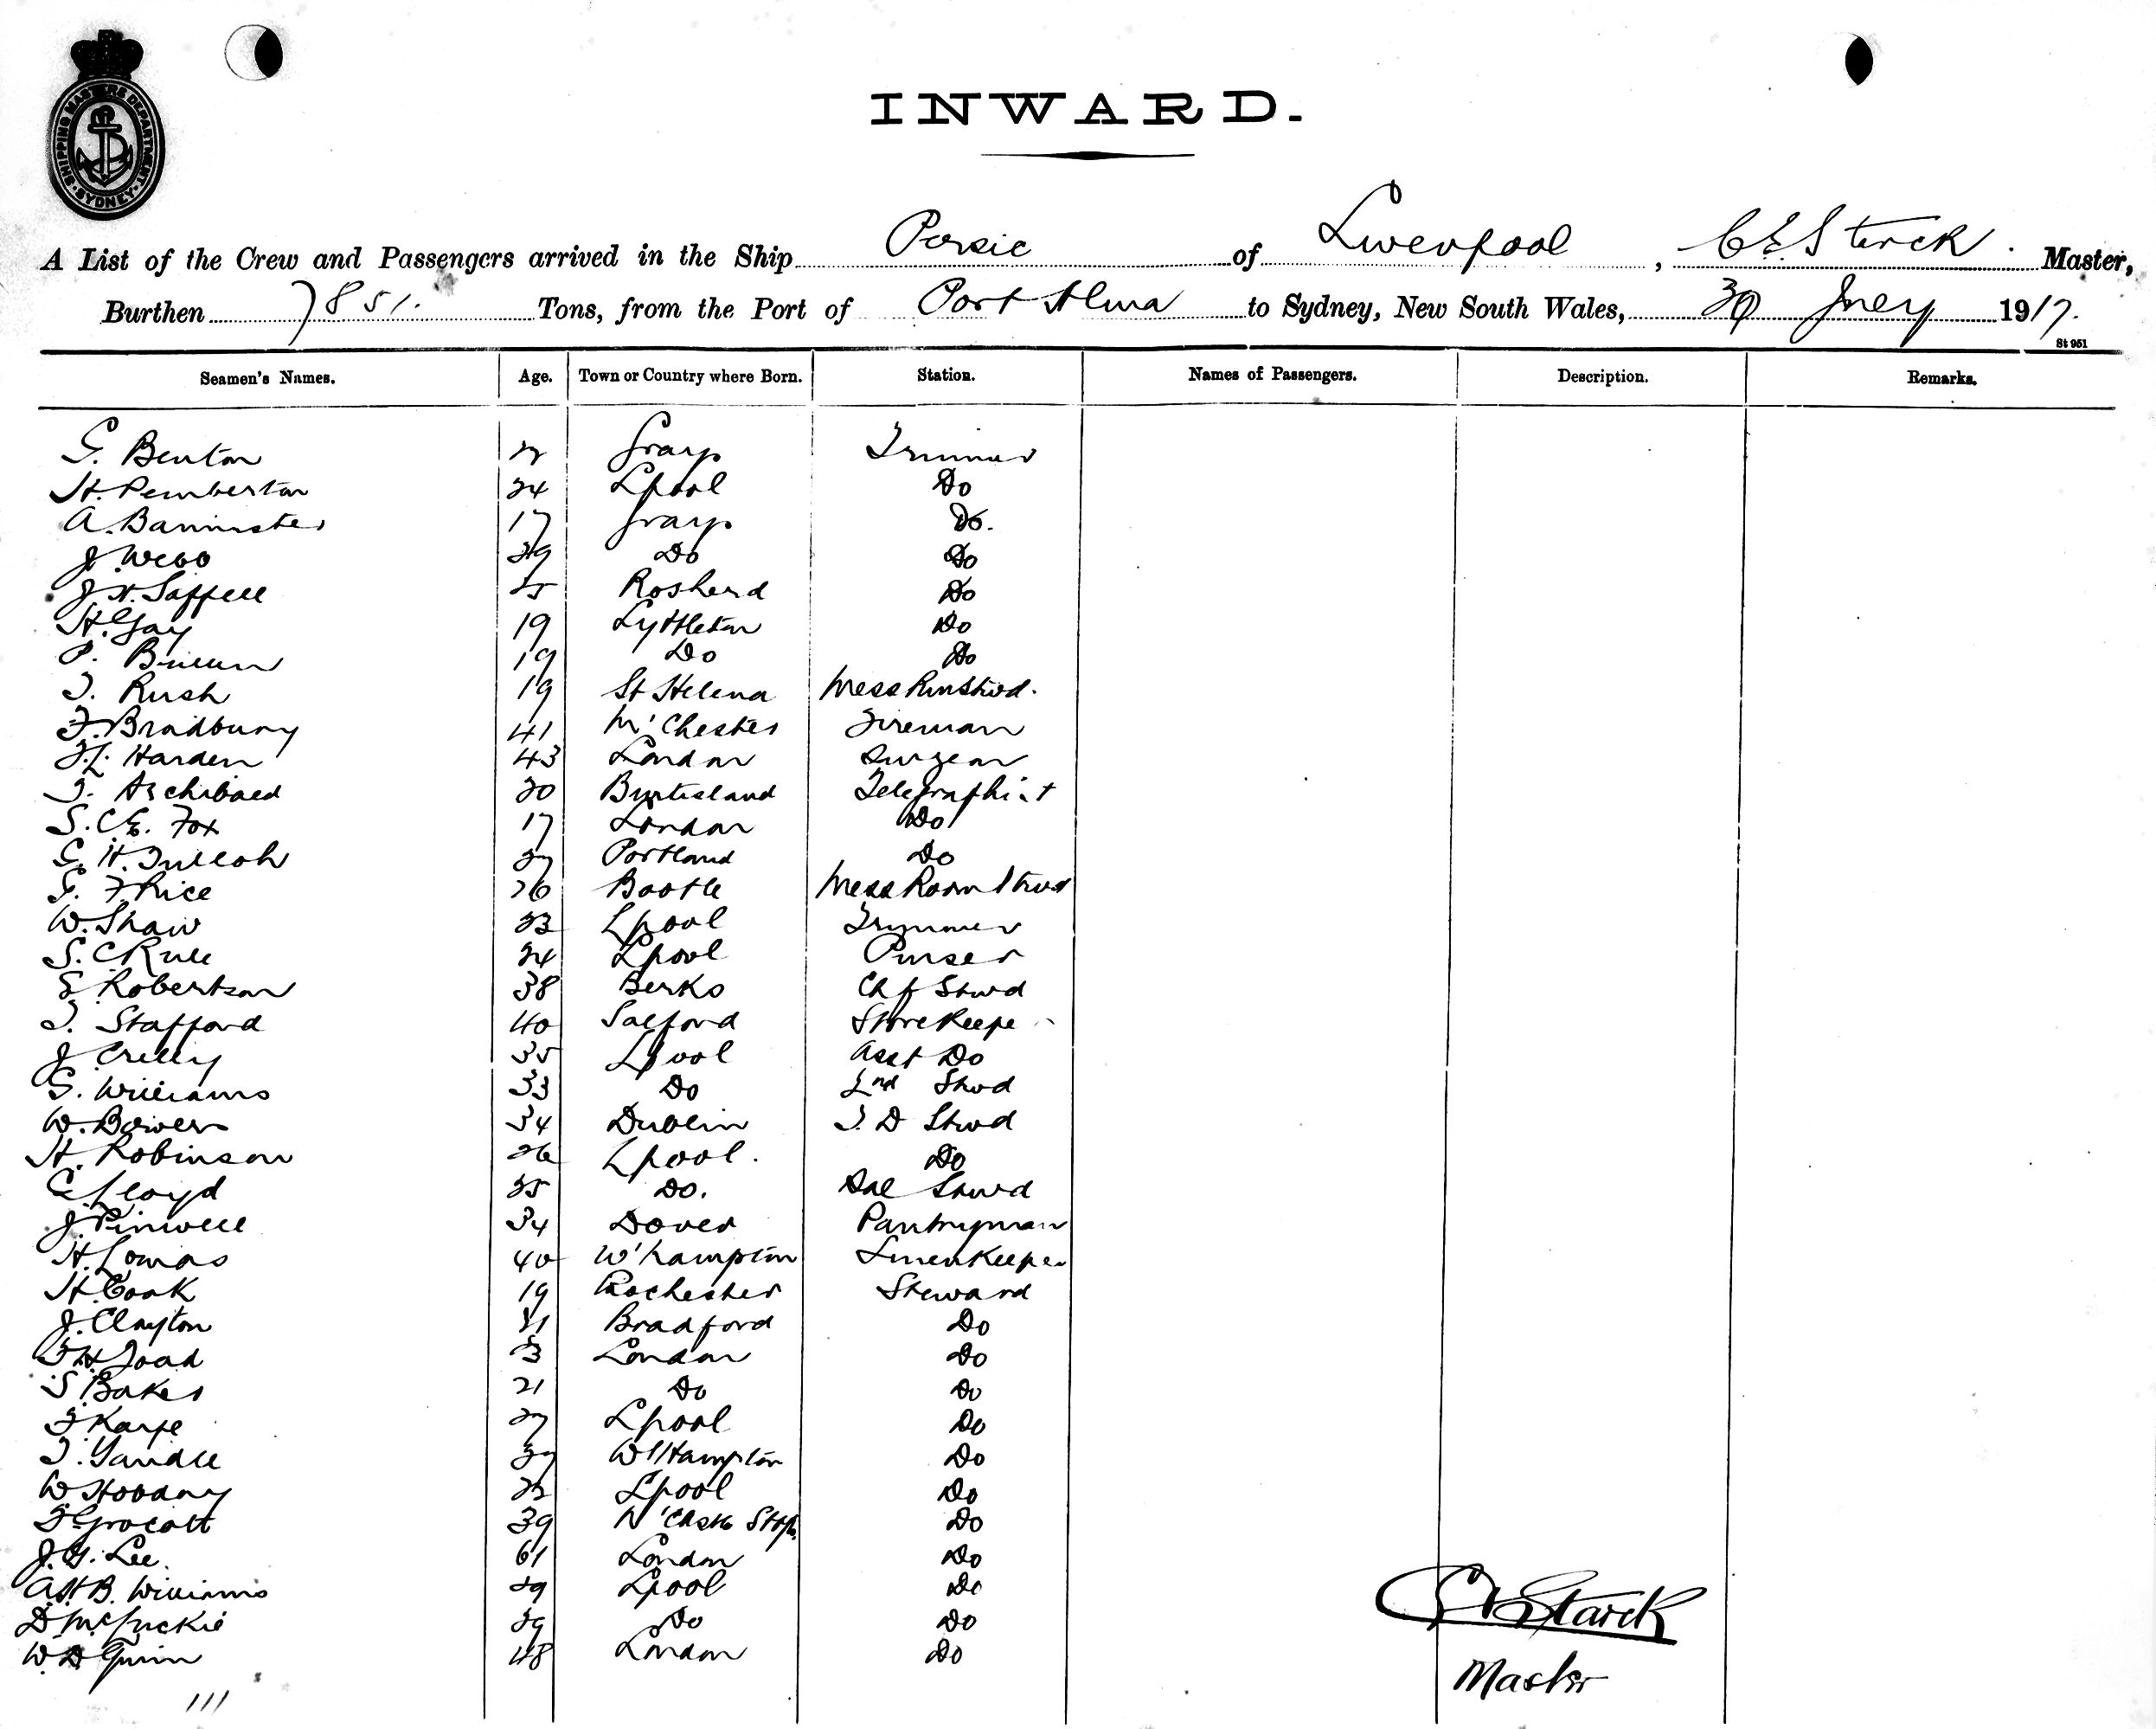 SHIPPING MASTERS DEPARTMENT. SYDNEY
INWARD.
A List of the Crew and Passengers arrived in the Ship Persic of Liverpool, C E Starck. Master,
Burthen 7851. Tons, from the Port of Port Alma to Sydney, New South Wales, 30 1917.
St 951
Seamen's Names. Age. Town or Country where Born. Station. Names of Passengers. Description. Remarks.
G. Benton Trimmer
H. Pemberton 24 Lpool Do
A. Bannister 17 Do.
J Webb 29 Do Do
J H. Saffell 25 Do
H. Gay 19 Lyttleton Do
P. 19 Do Do
T. Rush 19 St Helena Mess Rm Stwd.
F. Bradbury 41 M'Chester Fireman
F.L. Harden 43 London Surgeon
T. Archibald 20 Burtisland Telegraphist
S. C. E. Fox 17 London Do
G. H. Tulloh 27 Portland Do
G. F Rice 26 Bootle Mess Room Stwd
W. Shaw 23 Lpool Trimmer
S. C Rule 24 Lpool Purser
E Robertson 38 Berks Chf Stwd
T. Stafford 40 Salford Storekeeper
J Crelly 35 Lpool Asst Do
G. Williams 33 Do 2nd Stwd
W. Bowers 34 Dublin S. D Stwd
H. Robinson 26 Lpool. Do
C. Lloyd 25 Do. Sal Stwd
J. Pinwell 34 Dover Pantryman
H. Lomas 40 W'hampton Linenkeeper
H. Cook 19 Rochester Steward
J. Clayton 21 Bradford Do
Joad London Do
S Baker 21 Do Do
F Karfe 27 Lpool Do
T. Yandle W'Hampton Do
W Hobday 22 Lpool Do
F Grocott 39 N'Castle Do
J. G. Lee. 61 London Do
A. H B. Williams 29 Lpool Do
D McLuckie 29 Do Do
W. D Guinn 48 London Do
C E Starck
Master
111